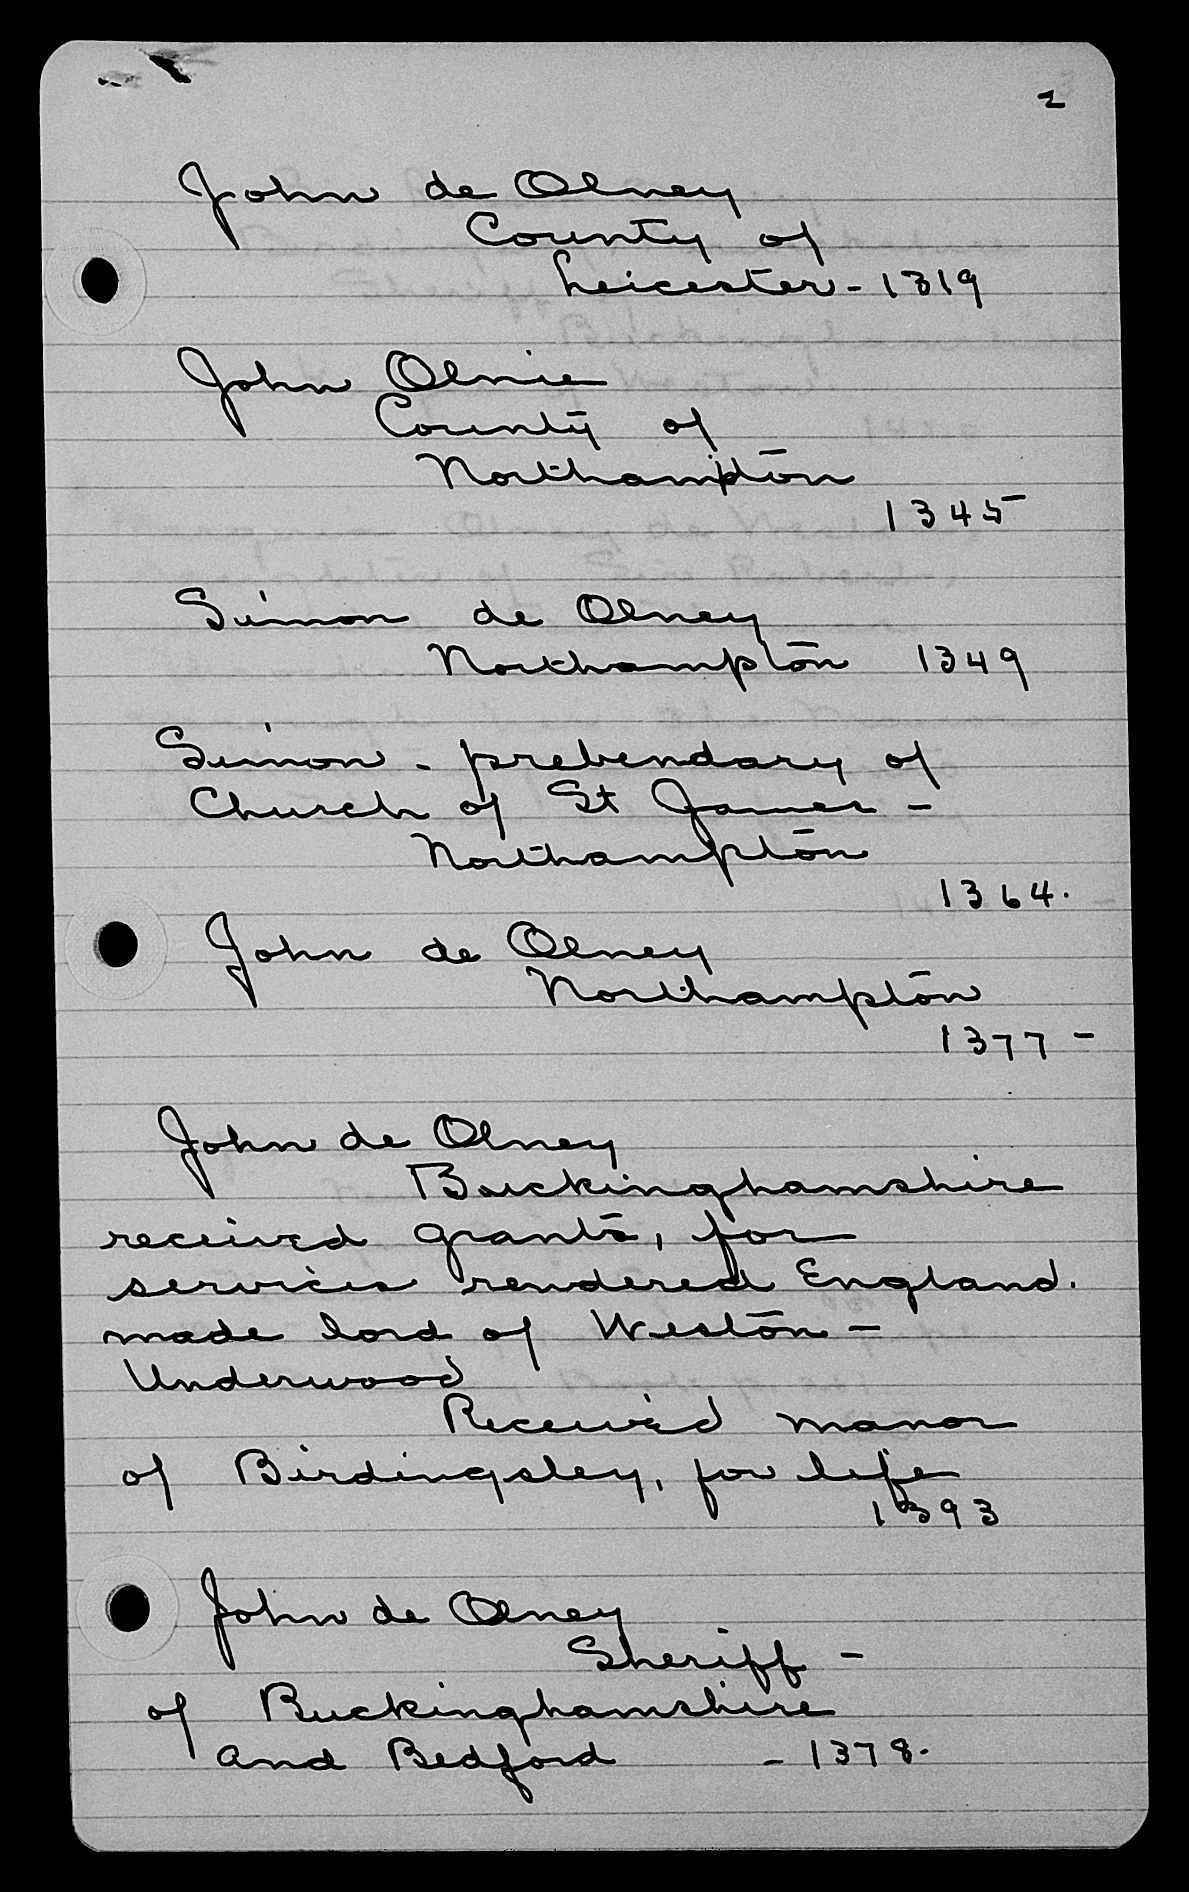 2
John de Olney
County of
Leicester - 1319
John Olnie
County of
Northampton
1345
Simon de Olney
Northampton 1349
Simon - prebendary of
Church of St James -
Northampton
1364.
John de Olney
Northampton
1377 -
John de Olney
Buckinghamshire
received grants, for
services rendered England.
made lord of Weston -
Underwood
Received manor
of Birdingsley, for life
1393
John de Olney
Sheriff -
of Buckinghamshire
and Bedford - 1378.